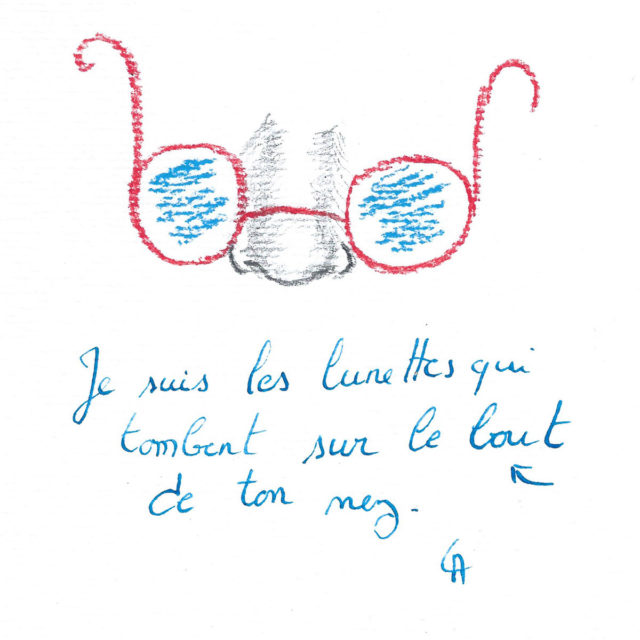 Je suis les lunettes qui
tombent sur le bout
de ton nez.